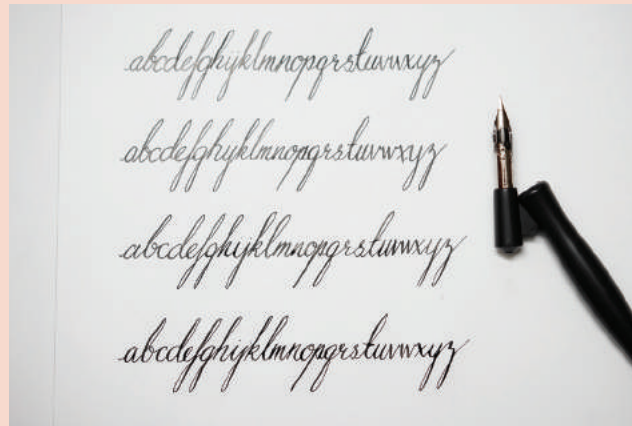 abcdefghijklmnopqrstuvwxyz
abcdefghijklmnopqrstuvwxyz
abcdefghijklmnopqrstuvwxyz
abcdefghijklmnopqrstuvwxyz